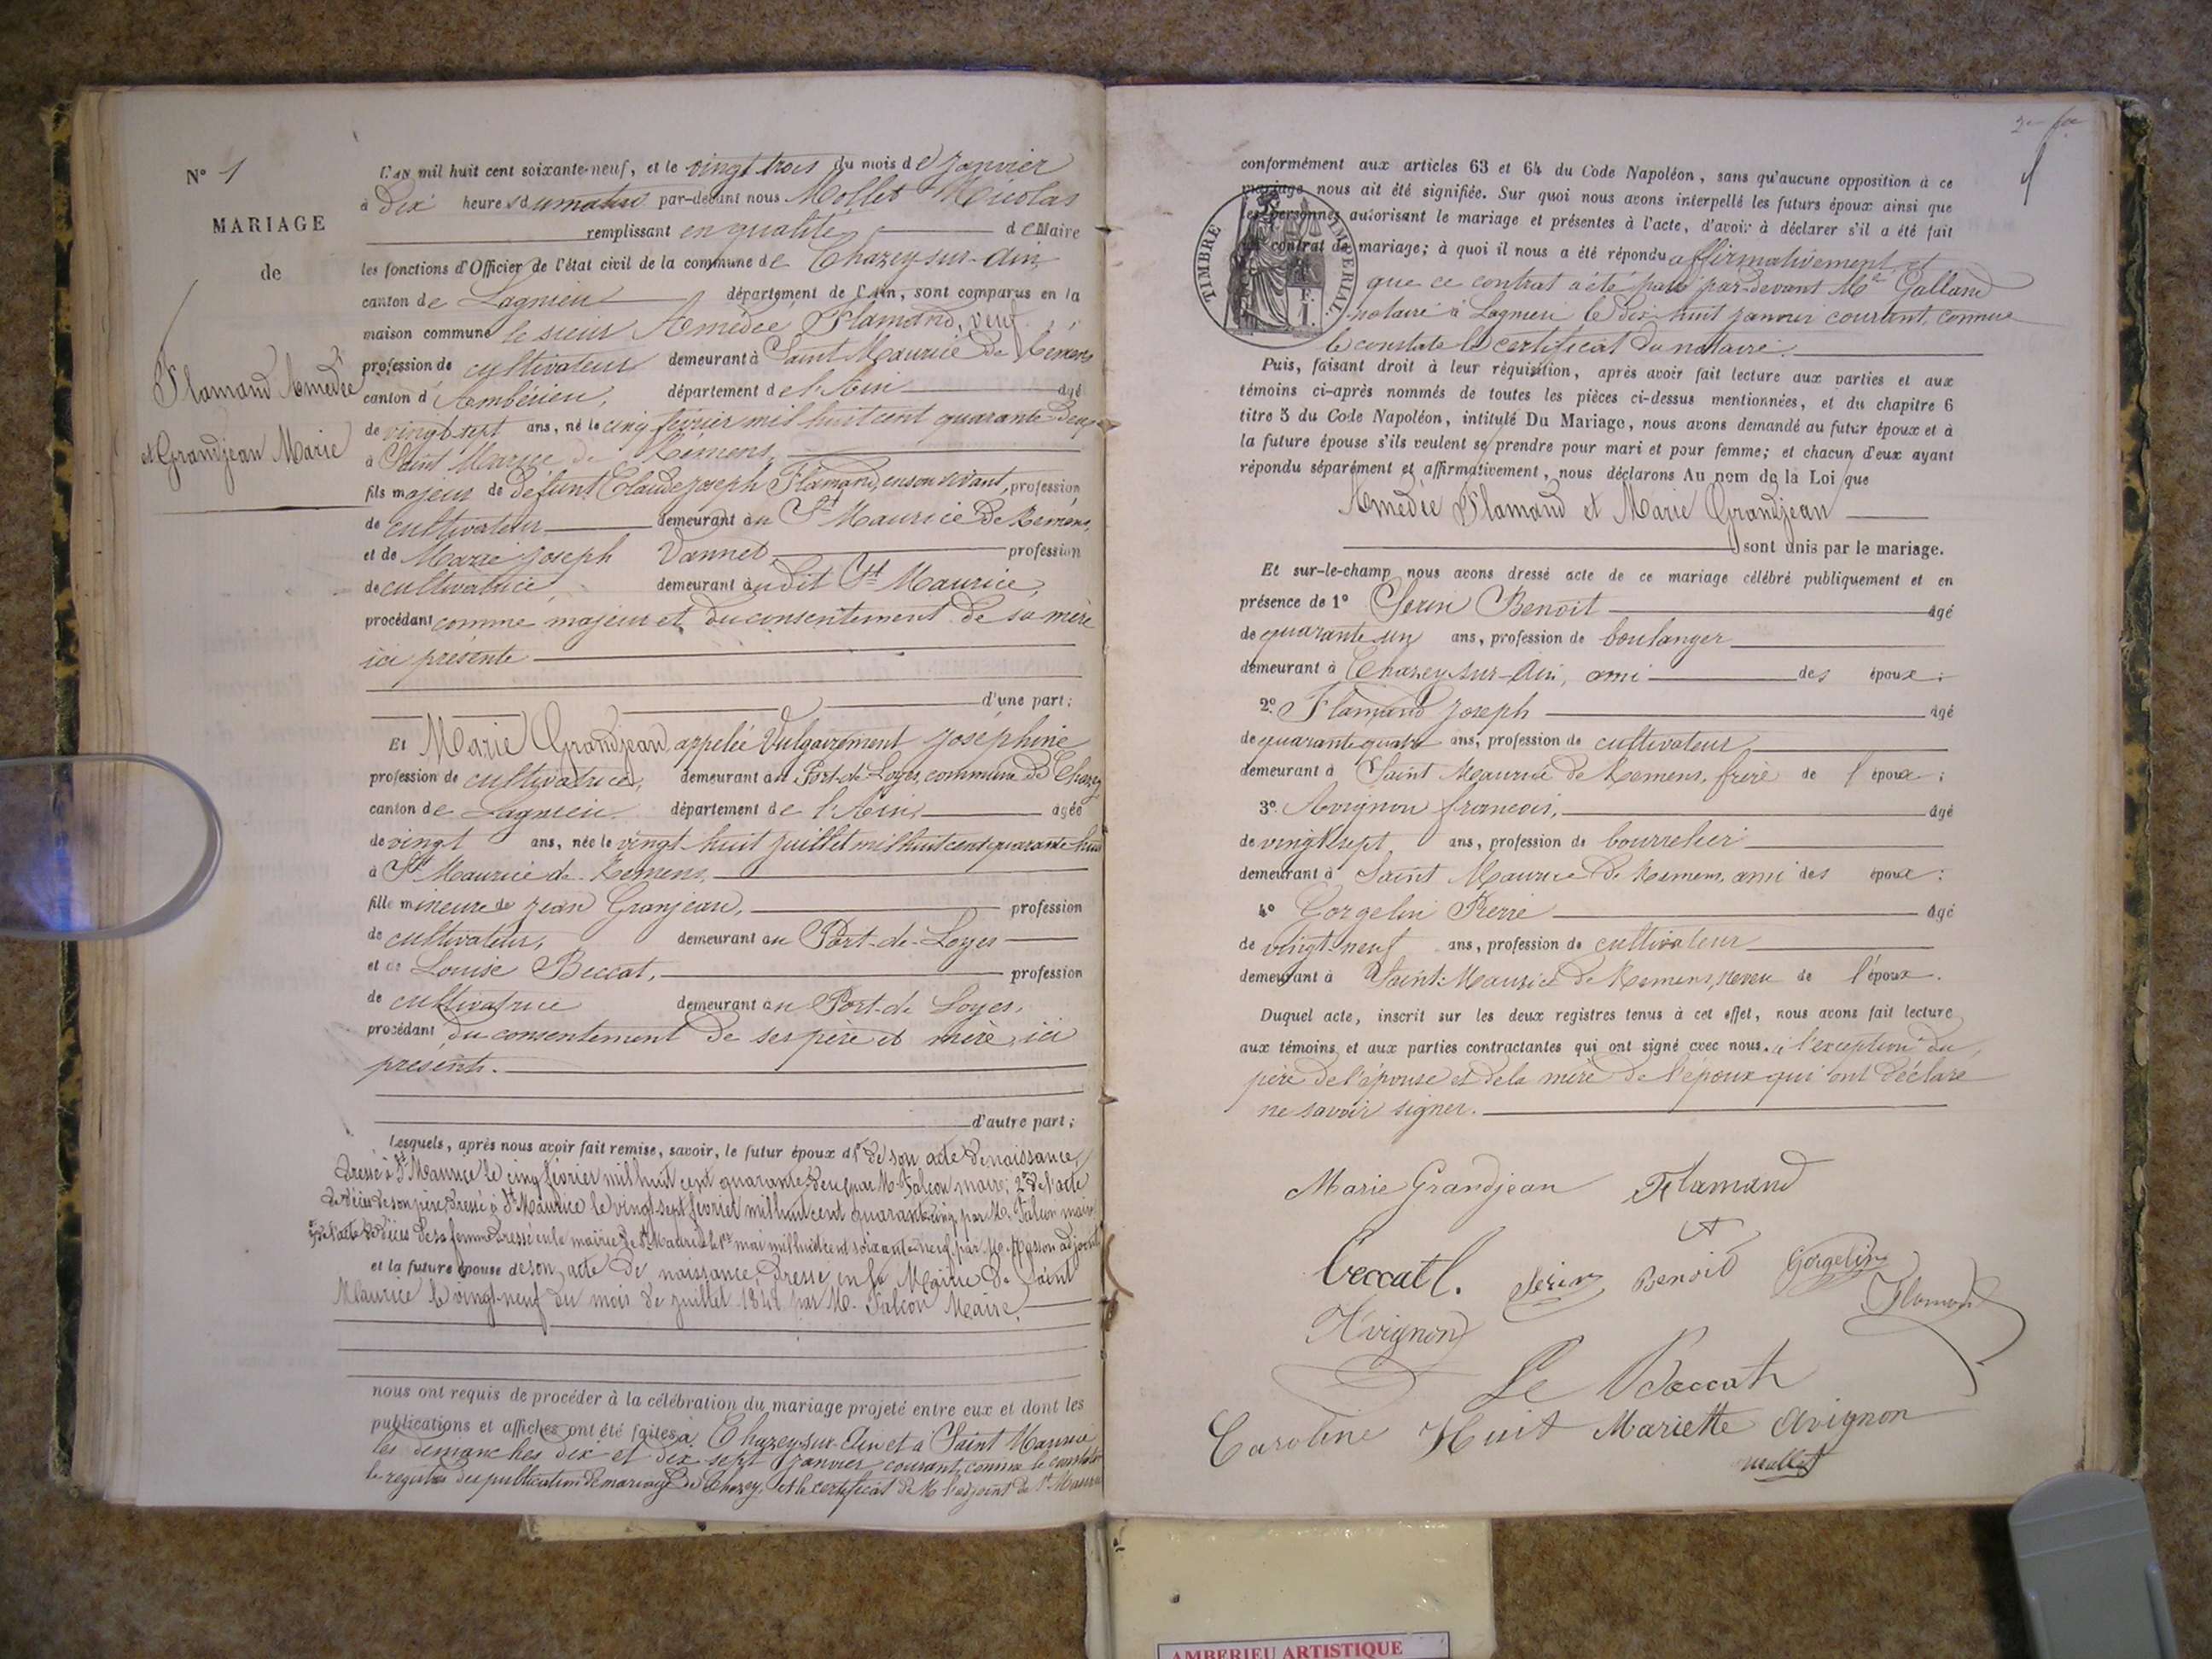 N° 1
MARIAGE
de
Flamand Amédée
et Grandjean Marie
L'AN mil huit cent soixante-neuf, et le vingt trois du mois de Janvier
à Dix heures du matin par-devant nous Mollet Nicolas
remplissant en qualité de Maire
les fonctions d'Officier de l'état civil de la commune de Chazey-sur-Ain
canton de Lagnieu département de l'Ain, sont comparus en la
maison commune le sieur Amédée Flamand, veuf
profession de cultivateur demeurant à Saint Maurice de Remens
canton d'Ambérieu, département de l'Ain âgé
de vingt sept ans, né le cinq février mil huit cent quarante deux
à Saint Maurice de Rémens,
fils majeur de défunt Claude Joseph Flamand, en son vivant, profession
de cultivateur demeurant au St Maurice de Remens,
et de Marie Joseph Vannet profession
de cultivatrice, demeurant au dit St Maurice,
procédant comme majeur et du consentement de sa mère
ici présente
d'une part;
Et Marie Grandjean appelée vulgairement Joséphine
profession de cultivatrice, demeurant au Port-de-Loyes, commune de Chazey
canton de Lagnieu département de l'Ain âgée
de vingt ans, née le vingt huit juillet mil huit cent quarante huit
à St Maurice de Remens,
fille mineure de Jean Granjean, profession
de cultivateur, demeurant au Port-de-Loyes
et de Louise Beccat, profession
de cultivatrice demeurant au Port-de Loyes,
procédant du consentement de ses père et mère, ici
présents.
d'autre part;
Lesquels, après nous avoir fait remise, savoir, le futur époux d 1° de son acte de naissance,
dressé à St Maurice le cinq février mil huit cent quarante deux par M. Falcon maire; 2° de l'acte
de décès de son père dressé à St Maurice le vingt sept février mil huit cent quarante cinq par M. Falcon maire
3° de l'acte de décès de sa femme dressé en la mairie de St Maurice le 1er mai mil huit cent soixante neuf par M. Masson adjoint
et la future épouse de son acte de naissance, dressé en la Mairie de Saint
Maurice le vingt-neuf du mois de juillet 1848 par M. Falcon Maire.
nous ont requis de procéder à la célébration du mariage projeté entre eux et dont les
publications et affiches ont été faites à Chazey-sur-Ain et à Saint Maurice
les dimanches dix et dix sept Janvier courant, comme le constate
le registre des publication de mariage de Chazey, et le certificat de M. l'adjoint de St Maurice
conformément aux articles 63 et 64 du Code Napoléon, sans qu'aucune opposition à ce
mariage nous ait été signifiée. Sur quoi nous avons interpellé les futurs époux ainsi que
les personnes autorisant le mariage et présentes à l'acte, d'avoir à déclarer s'il a été fait
un contrat de mariage; à quoi il nous a été répondu affirmativement et
que ce contrat a été passé par-devant Me Galland
notaire à Lagnieu le dix-huit janvier courant, comme
le constate le certificat du notaire.
TIMBRE IMPÉRIAL
A. F.
1.
Puis, faisant droit à leur réquisition, après avoir fait lecture aux parties et aux
témoins ci-après nommés de toutes les pièces ci-dessus mentionnées, et du chapitre 6
titre 5 du Code Napoléon, intitulé Du Mariage, nous avons demandé au futur époux et à
la future épouse s'ils veulent se prendre pour mari et pour femme; et chacun d'eux ayant
répondu séparément et affirmativement, nous déclarons Au nom de la Loi que
Amédée Flamand et Marie Grandjean
sont unis par le mariage.
Et sur-le-champ nous avons dressé acte de ce mariage célébré publiquement et en
présence de 1° Serin Benoit âgé
de quarante un ans, profession de boulanger
demeurant à Chazey-sur-Ain, ami des époux;
2° Flamand Joseph âgé
de quarante quatre ans, profession de cultivateur
demeurant à Saint Maurice de Remens, frère de l'époux;
3° Avignon françois, âgé
de vingt sept ans, profession de bourrelier
demeurant à Saint Maurice de Remens, ami des époux;
4° Gorgelin Pierre âgé
de vingt-neuf ans, profession de cultivateur
demeurant à Saint-Maurice de Remens, neveu de l'époux.
Duquel acte, inscrit sur les deux registres tenus à cet effet, nous avons fait lecture
aux témoins et aux parties contractantes qui ont signé avec nous. à l'exception du
père de l'épouse et de la mère de l'époux qui ont déclaré
ne savoir signer.
Marie Grandjean Flamand
Beccat l. Serin Benoit Gorgelin
Flamand
Avignon
Le Beccat
Caroline Huit Mariette Avignon
Mollet
AMBERIEU ARTISTIQUE